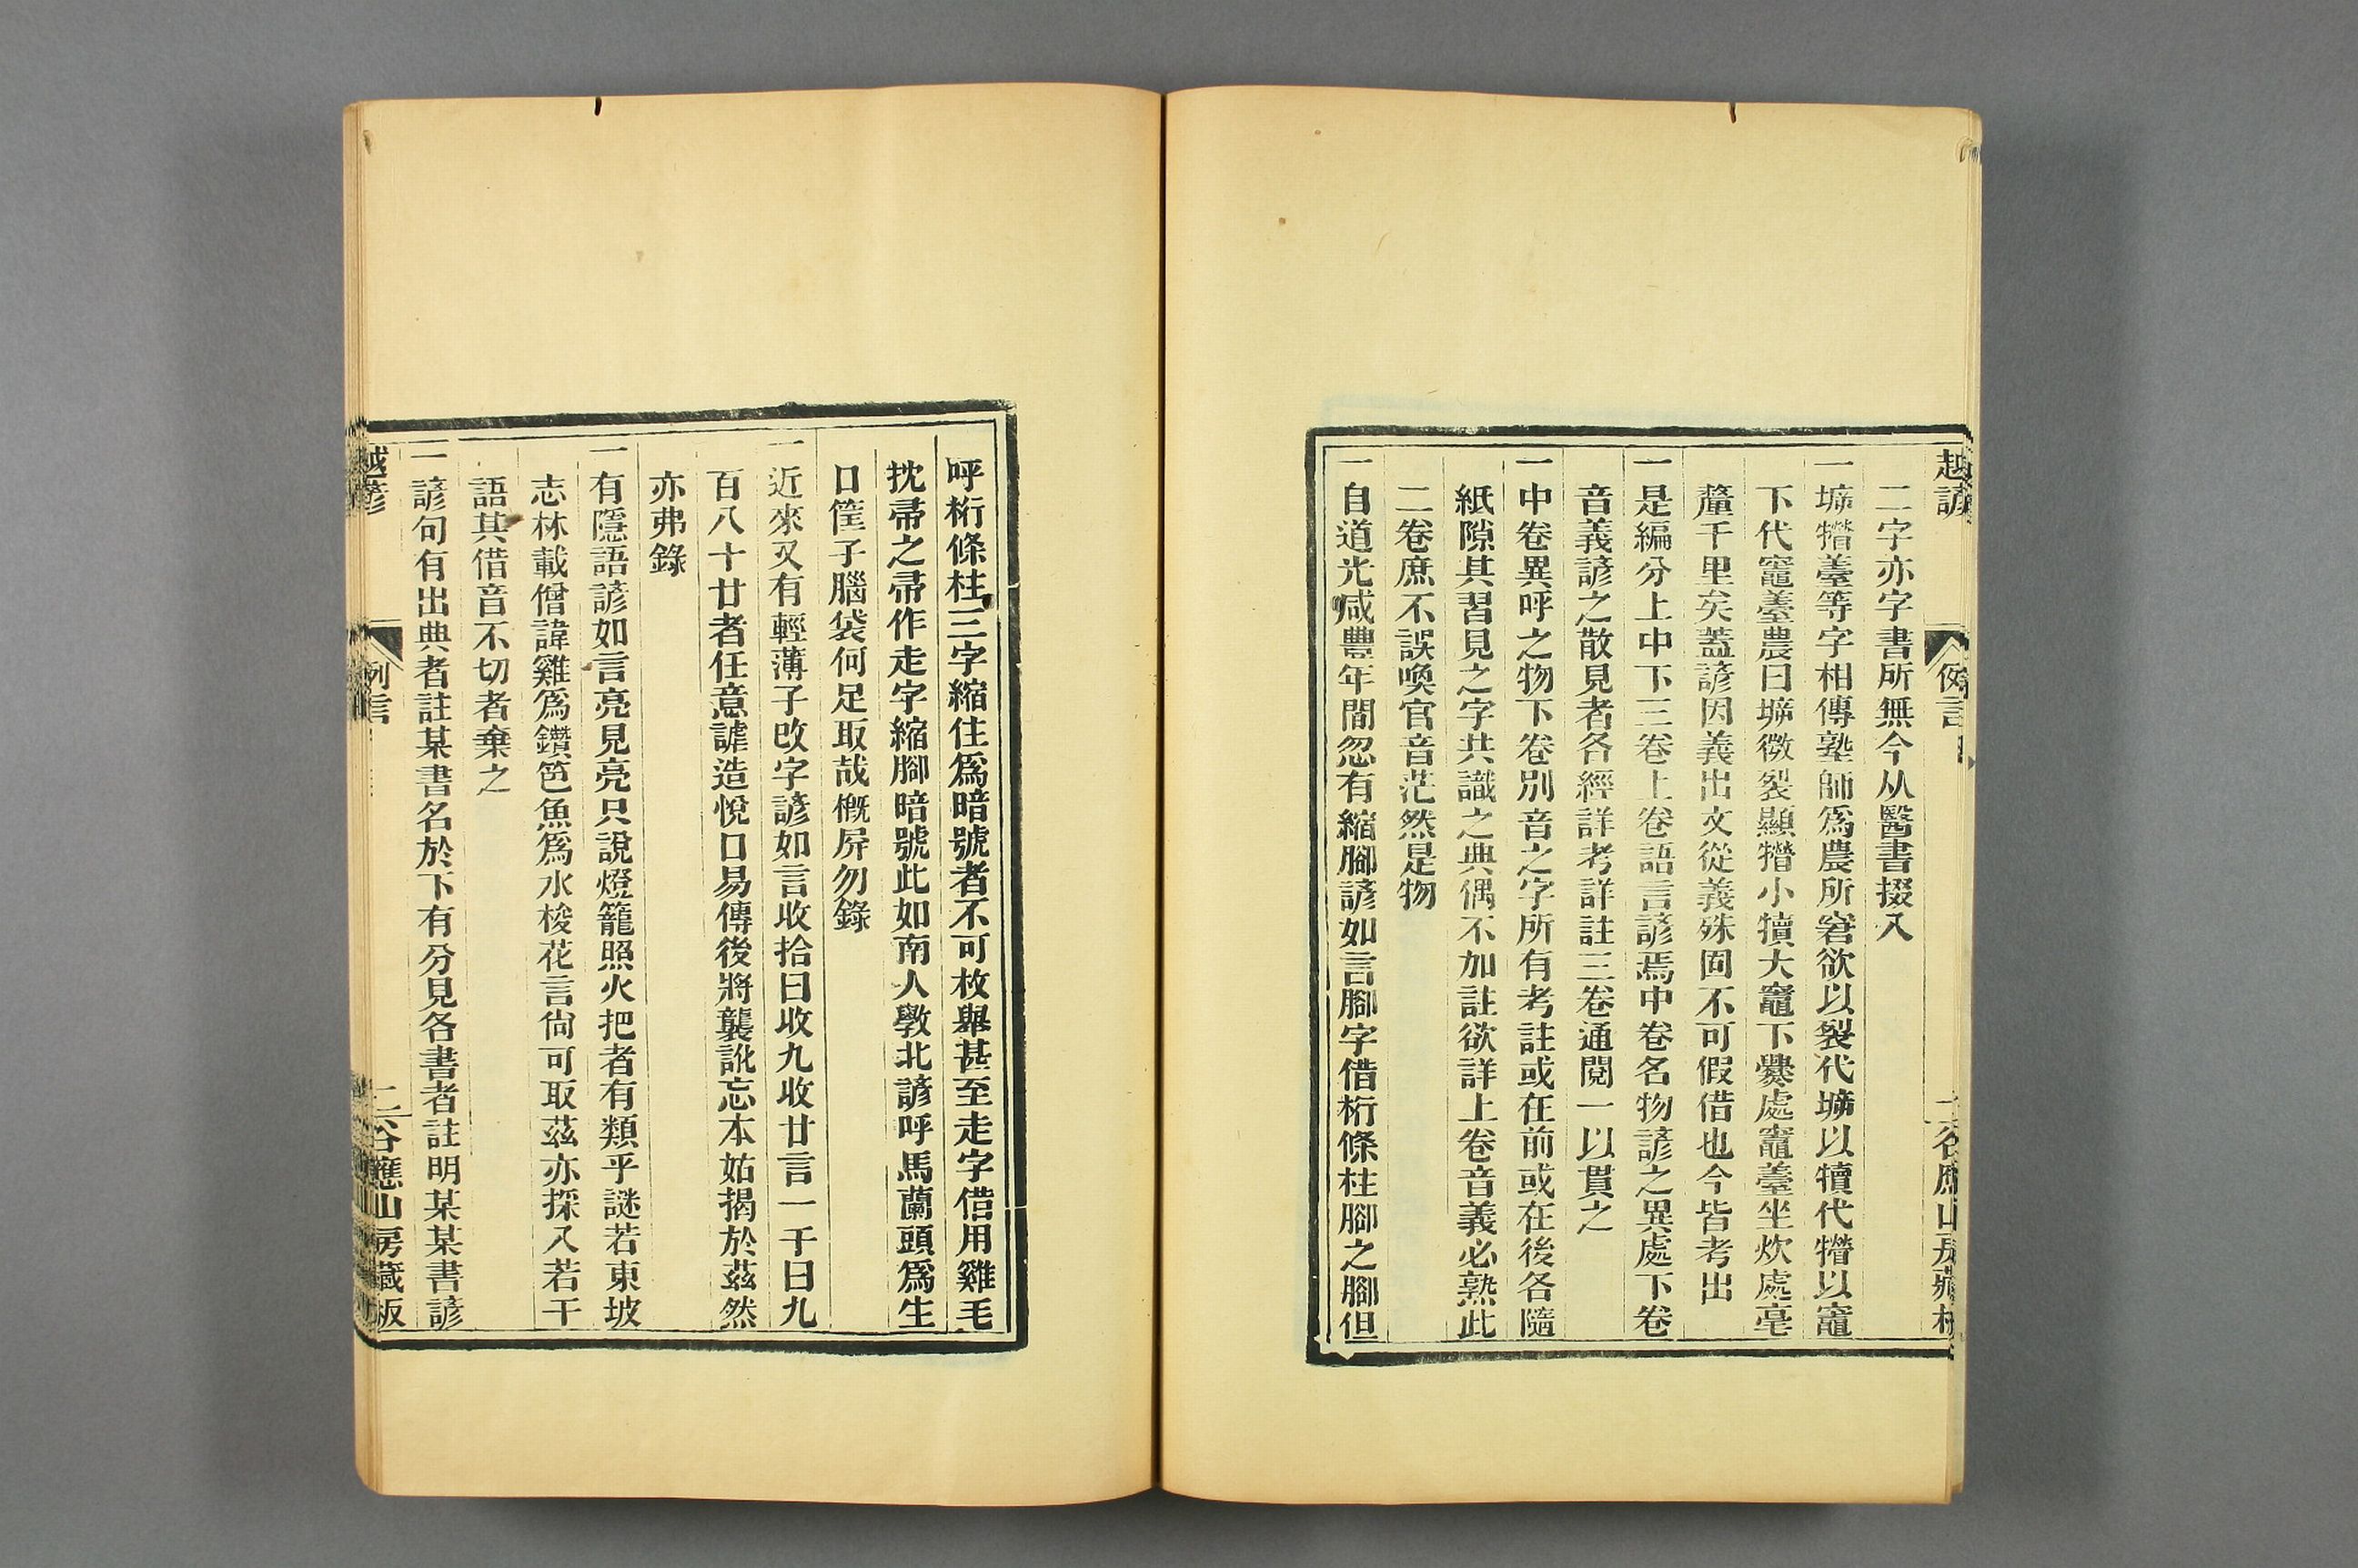 越諺
例言
二字亦字書所無今从醫書掇入
一㙠㹂臺等字相傳塾師爲農所窘欲以裂代㙠以犢代㹂以竈
下代竈臺農曰㙠微裂顯㹂小犢大竈下爨處竈臺坐炊處毫
釐千里矣蓋諺因義出文從義殊固不可假借也今皆考出
一是編分上中下三卷上卷語言諺焉中卷名物諺之異處下卷
音義諺之散見者各經詳考詳註三卷通閱一以貫之
一中卷異呼之物下卷別音之字所有考註或在前或在後各隨
紙隙其習見之字共識之典偶不加註欲詳上卷音義必熟此
二卷庶不誤喚官音茫然是物
一自道光咸豐年間忽有縮腳諺如言腳字借桁條柱腳之腳但
呼桁條柱三字縮住爲暗號者不可枚舉甚至走字借用雞毛
抌帚之帚作走字縮腳暗號此如南人斆北諺呼馬蘭頭爲生
口筐子腦袋何足取哉概屛勿錄
一近來又有輕薄子改字諺如言收拾曰收九收廿言一千曰九
百八十廿者任意謔造悅口易傳後將襲訛忘本姑揭於茲然
亦弗錄
一有隱語諺如言亮見亮只說燈籠照火把者有類乎謎若東坡
志林載僧諱雞爲鑽笆魚爲水梭花言尙可取茲亦採入若干
語其借音不切者棄之
一諺句有出典者註某書名於下有分見各書者註明某某書諺
越諺
例言
二
谷應山房藏板